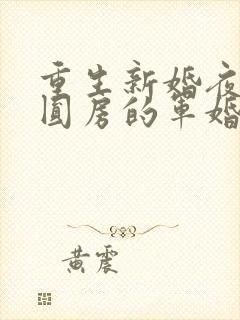 重生新婚夜
圆房的军婚
黄震